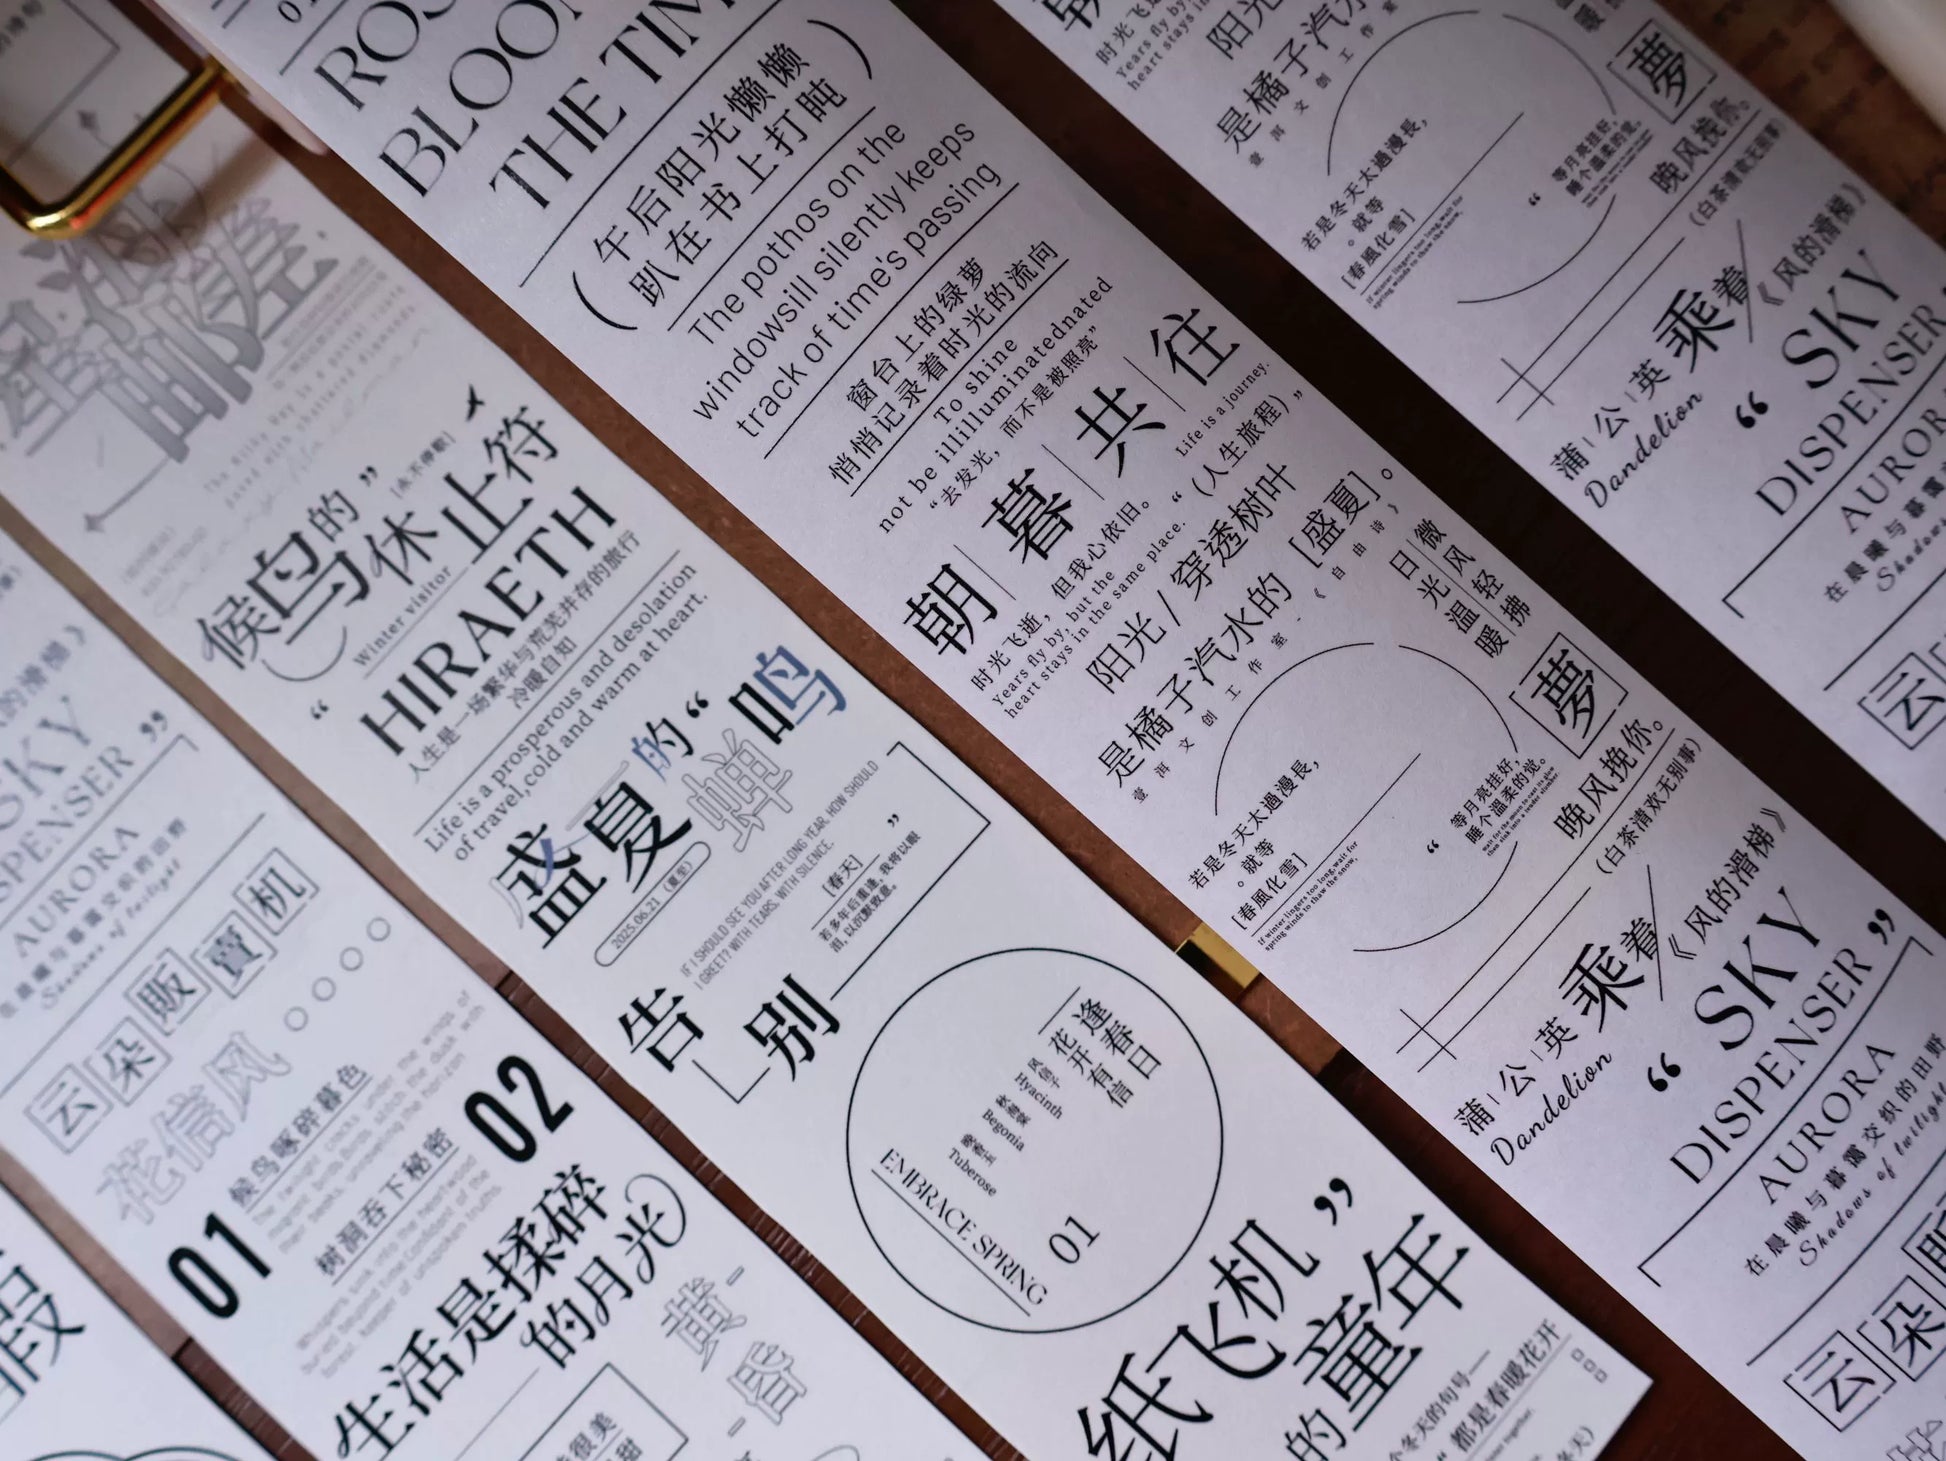 BLOOM
THE TIM
(午后阳光懒懒
趴在书上打盹)
The pothos on the
windowsill silently keeps
track of time's passing
窗台上的绿萝
悄悄记录着时光的流向
To shine
not be illilluminatednated
“去发光，而不是被照亮”
朝|暮|共|往
Life is a journey.
时光飞逝，但我心依旧。“(人生旅程)”
Years fly by, but the
heart stays in the same place.
阳光/穿透树叶
是橘子汽水的[盛夏]。
壹洱文创工作室-《自由诗》
微风轻拂
日光温暖
若是冬天太過漫長，
。就等
[春風化雪]
If winter lingers too long,wait for
spring winds to thaw the snow,
夢
“等月亮挂好，
睡个温柔的觉。
wait for the moon to cast its glow
then sink into a tender slumber.
晚风挽你。
(白茶清欢无别事)
蒲|公|英乘着《风的滑梯》
Dandelion
“SKY
DISPENSER”
AURORA
在晨曦与暮霭交织的田野
Shadows of twilight
云朵販
时光飞逝
Years fly by
heart stays in
阳光
是橘子汽水
壹洱文创工作室
若是冬天太過漫長，
。就等
[春風化雪]
If winter lingers too long,wait for
spring winds to thaw the snow,
暖
夢
“等月亮挂好，
睡个温柔的觉。
晚风挽你。
(白茶清欢无别事)
蒲|公|英乘着《风的滑梯》
Dandelion
“SKY
DISPENSER
AURORA
在晨曦与暮霭
Shadows
云
候鸟的”[永不停歇]
休止符
Winter visitor
“HIRAETH
人生是一场繁华与荒芜并存的旅行
冷暖自知
Life is a prosperous and desolation
of travel,cold and warm at heart.
盛夏的“蝉鸣
2025.06.21 (夏至)
IF I SHOULD SEE YOU AFTER LONG YEAR. HOW SHOULD
I GREET? WITH TEARS. WITH SILENCE.
[春天]”
若多年后重逢，我将以眼
泪，以沉默致意。
告别
逢春日
花开有信
风信子
Hyacinth
秋海棠
Begonia
晚香玉
Tuberose
EMBRACE SPRING
01
纸飞机”
的童年
个冬天的句号—
“都是春暖花开
SKY
DISPENSER”
AURORA
在晨曦与暮霭交织的田野
Shadows of twilight
云朵販賣机
花信风
01
候鸟啄碎暮色
The twilight cracks under the wings of
migrant birds.Birds, stitch the dusk with
their beaks, unraveling the horizon
树洞吞下秘密
02
Whispers sunk into the heartwood
buried beyond time.Confidant of the
forest, keeper of unspoken truths.
生活是揉碎
的月光
黄-
-昏
很美
甜
假